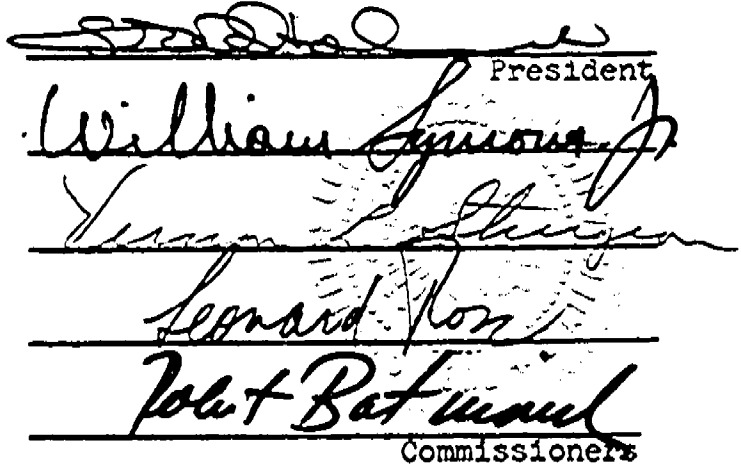 President
William Symons, Jr.
Vernon L. Sturgeon
Leonard Ross
Robert Batinovich
Commissioners